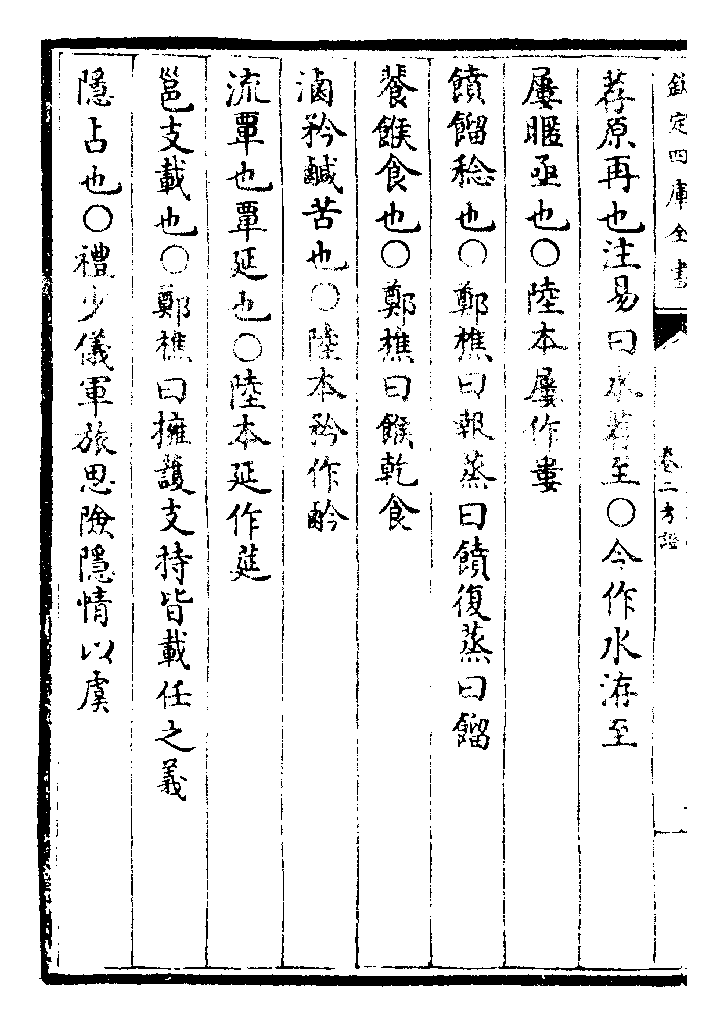 欽定四庫全書
卷二考證
荐原再也注易曰水荐至○今作水洊至
屢暱亟也○陸本屢作婁
饙餾稔也○鄭樵曰報蒸曰饙復蒸曰餾
餥餱食也○鄭樵曰餱乾食
滷矜鹹苦也○陸本矜作䤺
流覃也覃延也○陸本延作莚
邕支載也○鄭樵曰擁護支持皆載任之義
隱占也○禮少儀軍旅思險隱情以虞